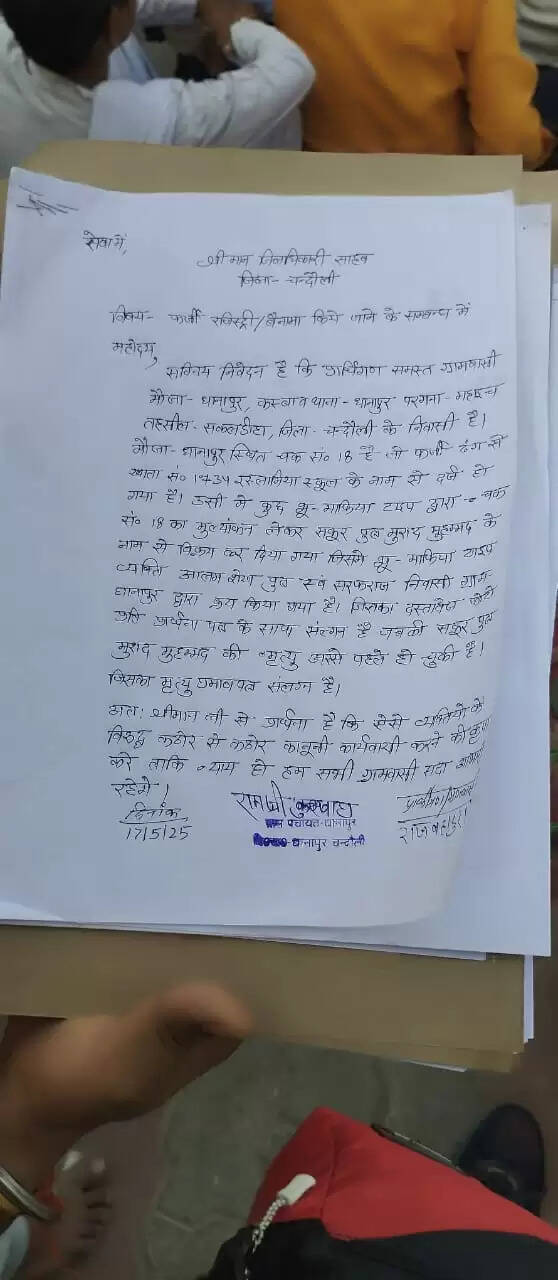 सेवा में,
श्रीमान जिलाधिकारी साहब
जिला - चन्दौली
विषय - फर्जी रजिस्ट्री/बैनामा किये जाने के सम्बन्ध में
महोदय,
सविनय निवेदन है कि प्रार्थीगण समस्त ग्रामवासी
मौजा - धानापुर, कस्बा व थाना - धानापुर परगना -
तहसील - सकलडीहा, जिला - चन्दौली के निवासी है।
मौजा - धानापुर स्थित चक सं० 18 है जो फर्जी ढंग से
खाता सं० 1434 इस्लामिया स्कूल के नाम से दर्ज हो
गया है। उसी में कुछ भू-माफिया टाइप द्वारा चक
सं० 18 का मुल्यांकन लेकर सकूर पुत्र मुराद मुहम्मद के
नाम से विक्रय कर दिया गया जिसमे भू-माफिया टाइप
व्यक्ति आलम पुत्र स्व सरफराज निवासी ग्राम -
धानापुर द्वारा क्रय किया गया है। जिसका दस्तावेज
प्रति प्रार्थना पत्र के साथ संलग्न है जबकी सकूर पुत्र
मुराद मुहम्मद की मृत्यु पहले हो चुकी है।
जिसका मृत्यु प्रमाणपत्र संलग्न है।
अतः श्रीमान जी से प्रार्थना है कि ऐसे व्यक्तियो के
विरुद्ध कठोर से कठोर कानूनी कार्यवाही करने की कृपा
करे ताकि न्याय हो हम सभी ग्रामवासी सदा
रहेगे।
दिनांक
17/5/25
रामजी कुशवाहा
ग्राम पंचायत-धानापुर
धानापुर चन्दौली